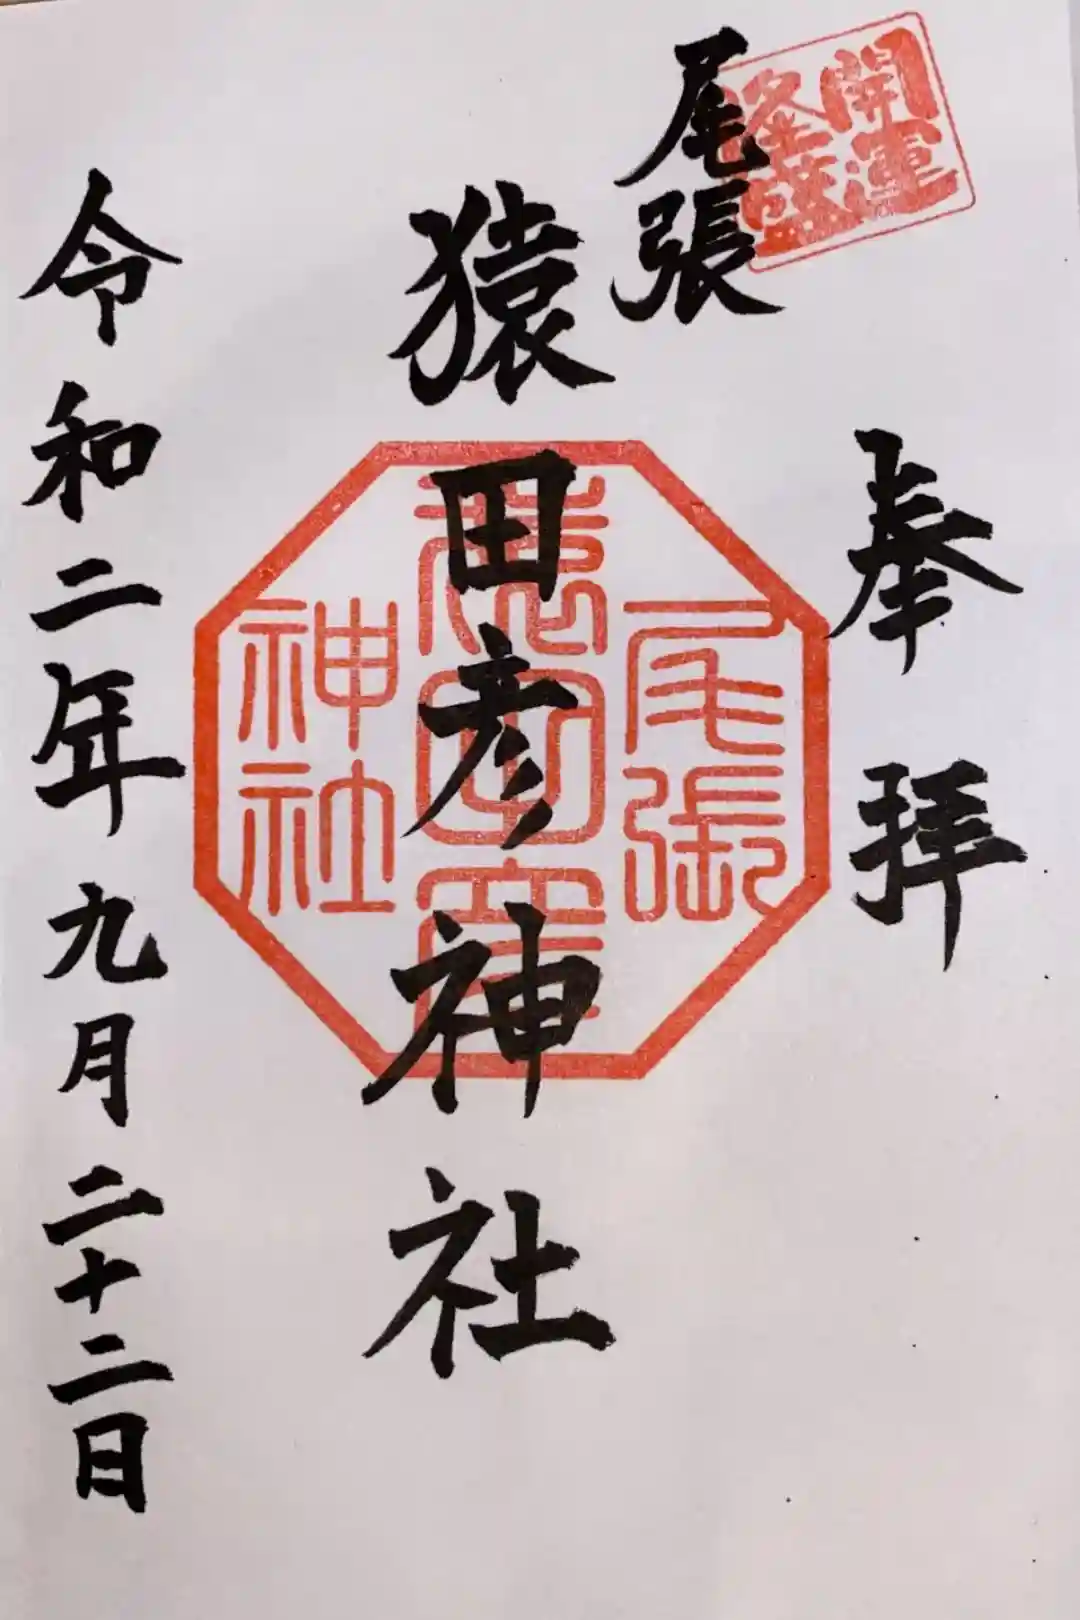 開運
隆盛
奉拝
尾張
猿田彦神社
尾張
猿田彦
神社
令和二年九月二十二日